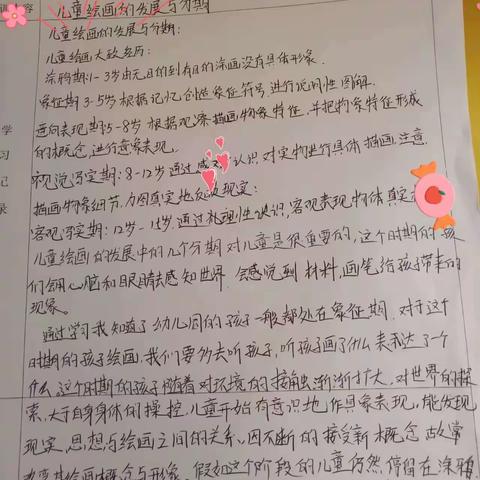 儿童绘画的发展与分期
儿童绘画的发展与分期:
儿童绘画大致老历:
涂鸦期:1-3岁由无目的到有目的涂画没有具体形象.
象征期 3-5岁根据记忆创造象征符号,进行说明性图解.
意向表现期:5-8岁 根据观察描画物象特征,并把物象特征形成
的概念,进行意象表现.
视觉写实期:8-12岁通过感 认识,对实物进行具体描画,注意
描画物象细节,力图真实地反映现实:
客观写实期:12岁-1岁,通过 理性 识,客观表现物体真实
儿童绘画的发展中的几个分期对儿童是很重要的,这个时期的孩
们用心脑和眼睛去感知世界.会感觉到材料,画笔给孩子带来的
现象。
通过学习我知道了幼儿园的孩子一般都处在象征期.对于这个
时期的孩子绘画,我们要多去听孩子,听孩子画了什么,表达了个
什么.这个时期的孩子随着对环境的接触渐渐扩大,对世界的探
索,大于自身身体的操控.儿童开始有意识地作具象表现,能发现
现实,思想与绘画之间的关系.因不断的接受新概念,故常
改变其绘画概念与形象.假如这个阶段的儿童仍然停留在涂鸦
学
习
记
录